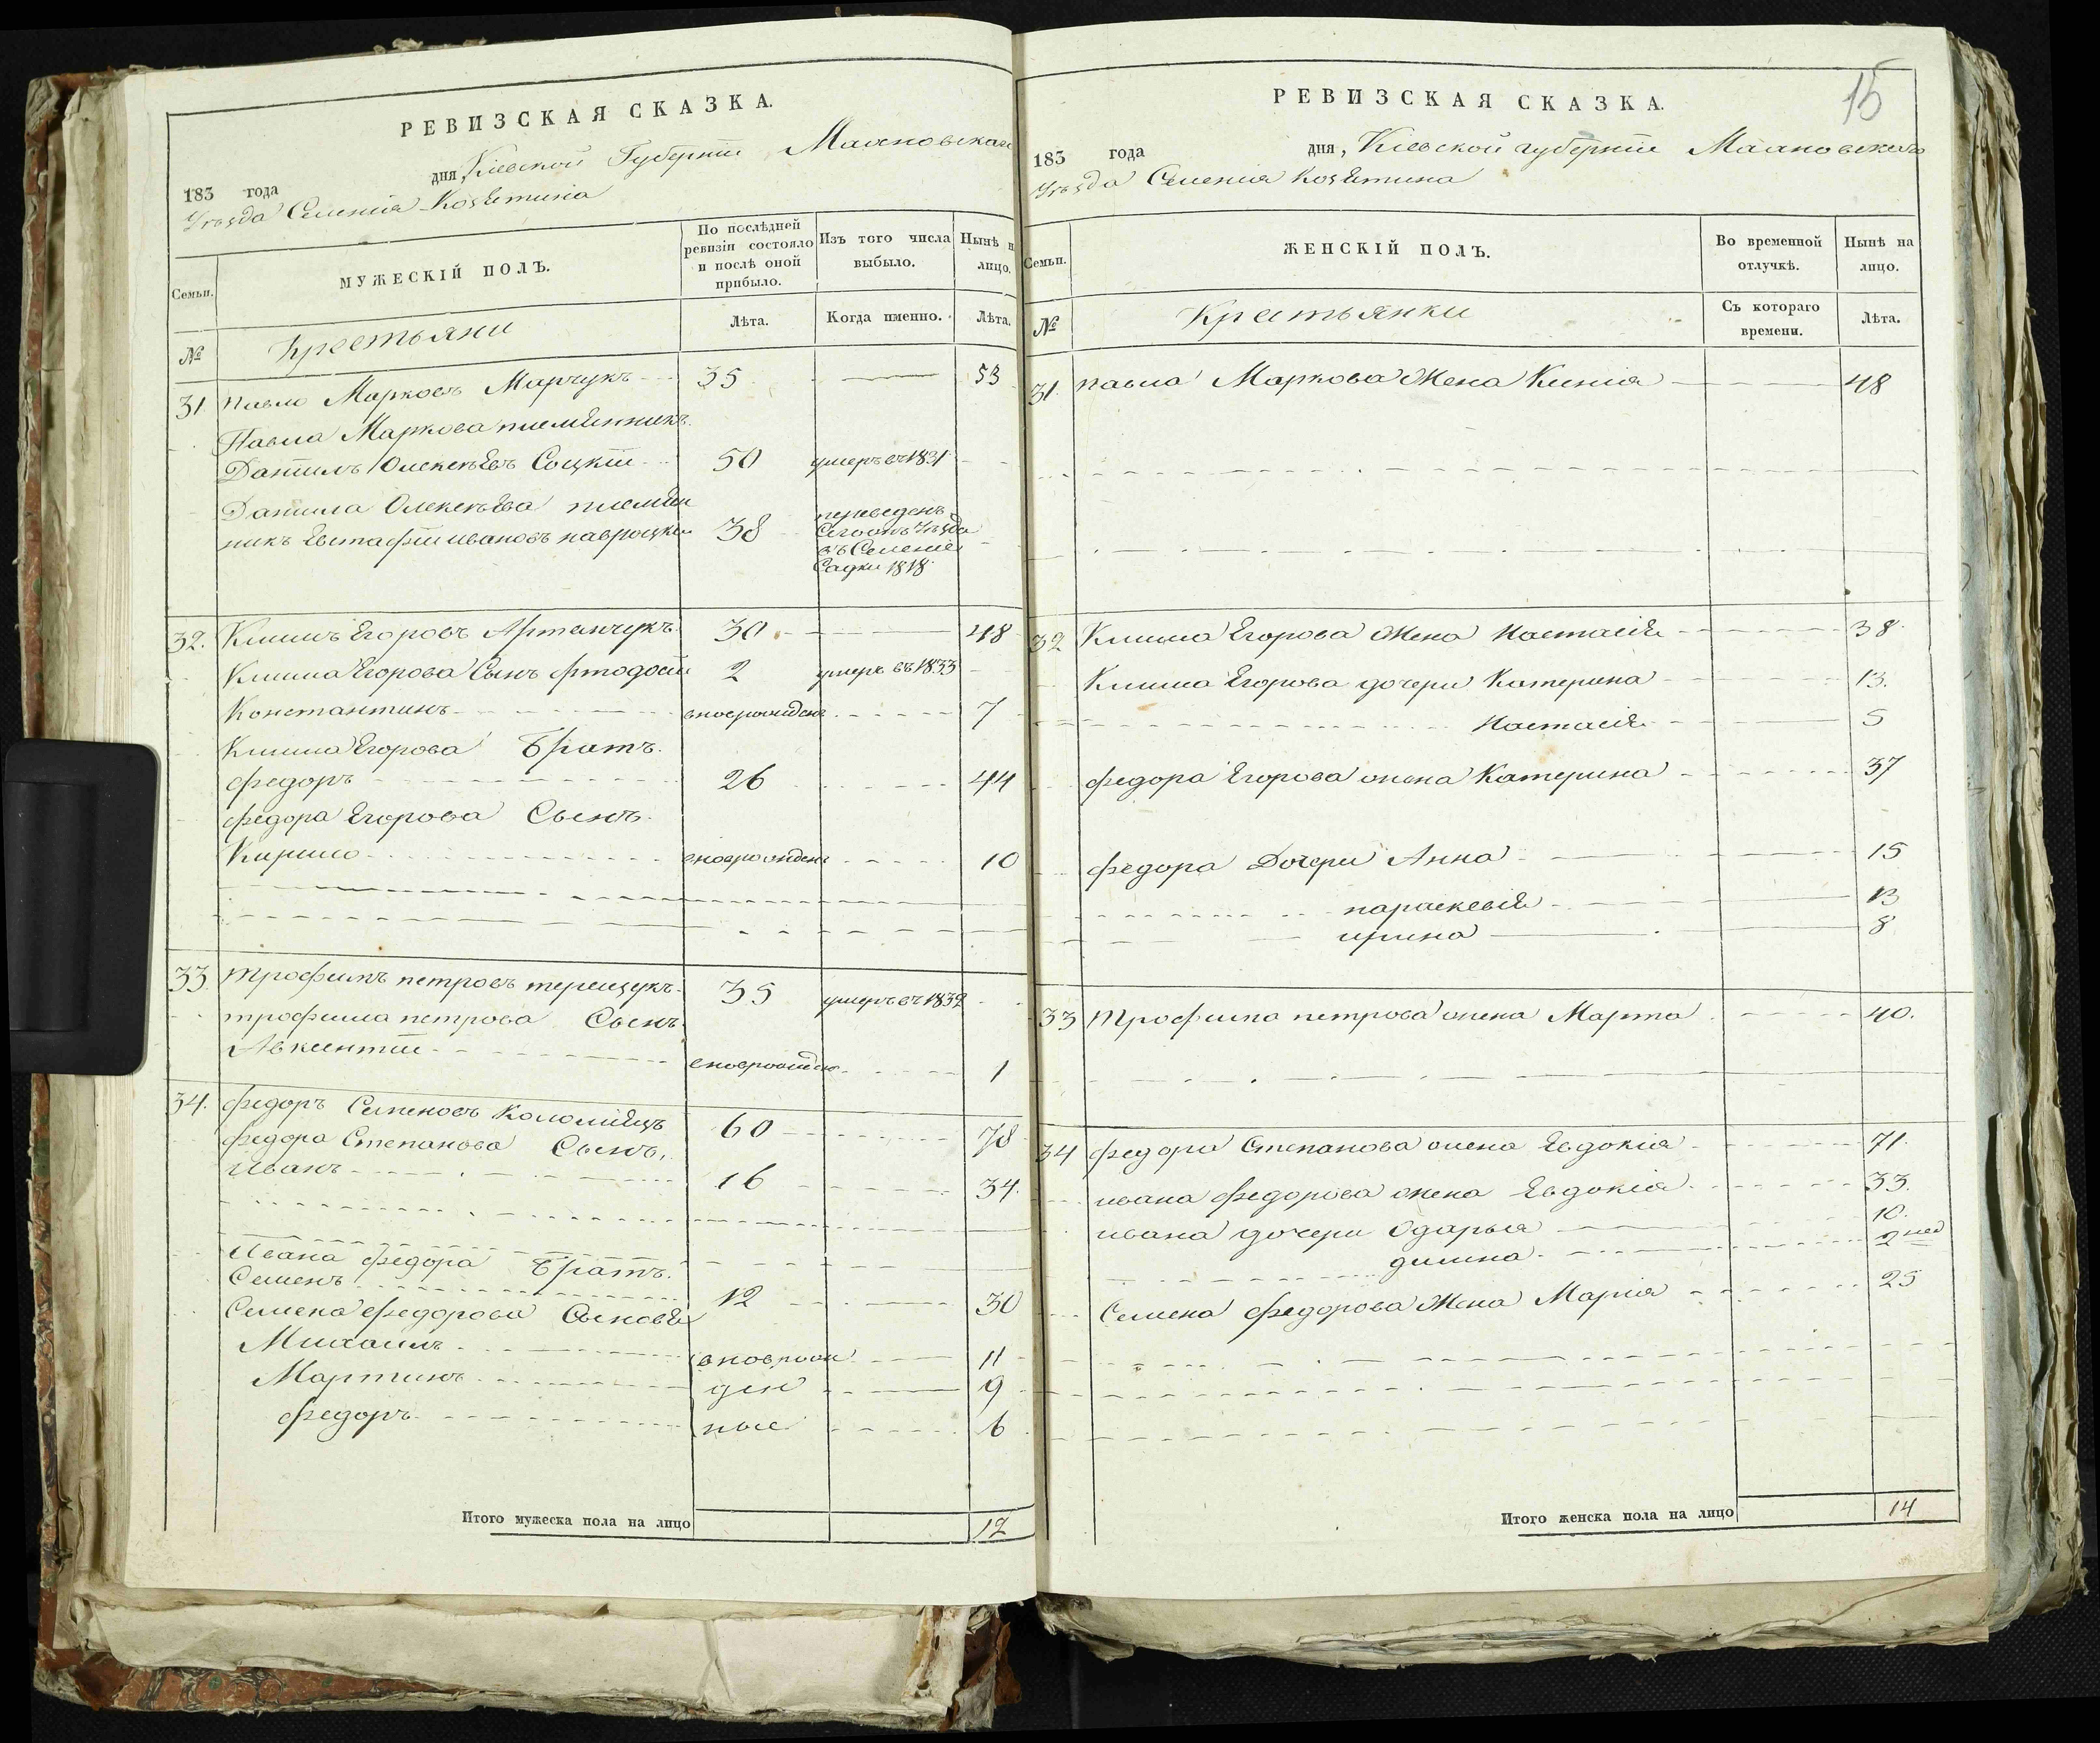 РЕВИЗСКАЯ СКАЗКА.
183 года дня, Кіевской Губерніи Махновскаго
Уѣзда Селенія Козѣтина
Семьи.
МУЖЕСКІЙ ПОЛЪ.
По послѣдней ревизіи состояло и послѣ оной прибыло.
Изъ того числа выбыло.
Нынѣ н лицо.
№
Крестьяни
Лѣта.
Когда именно.
Лѣта.
31 Павло Марковъ Марчукъ 35 53
Павла Маркова племѣнникъ
Данилъ Олексѣевъ Соцкій 50 умеръ въ 1831
Данила Олексѣева племѣн
никъ Евстафій Ивановъ навроцкій 38 переведенъ
Сегожъ Уѣзда
въ Селеніе
Садки 1818
32. Климъ Егоровъ Артемчукъ 30 48
Клима Егорова Сынъ 2 умеръ въ 1833
Константинъ вноврожденъ 7
Клима Егорова Братъ
федоръ 26 44
федора Егорова Сынъ
Кирило вноврожден 10
33. трофимъ петровъ терещукъ 35 умеръ въ 1832
трофима петрова Сынъ
Авксентій вноврожден 1
34. федоръ Степановъ Коломіецъ 60 78
федора Степанова Сынъ,
Иванъ 16 34
Ивана федора Братъ
Семенъ 12 30
Семена федорова Сыновѣя
Михаилъ вноврож 11
Мартинъ ден 9
федоръ ные 6
Итого мужеска пола на лицо 12
15
РЕВИЗСКАЯ СКАЗКА.
183 года дня, Кіевской губерніи Махновскаго
Уѣзда Селенія Козѣтина
Семьи.
ЖЕНСКІЙ ПОЛЪ.
Во временной отлучкѣ.
Нынѣ на лицо.
№
Крестьянки
Съ котораго времени.
Лѣта.
31. павла Маркова Жена Ксенія 48
32 Клима Егорова Жена Настасія 38
Клима Егорова дочери Катерина 13.
Настасія 5
федора Егорова жена Катерина 37
федора Дочери Анна 15
параскевія 13
ирина 8
33 Трофима петрова жена Марта 40.
34 федора Степанова жена Евдокія 71
ивана федорова жена Евдокія 33
ивана дочери Одарья 10.
2 нед
Семена федорова Жена Марія 25
Итого женска пола на лицо 14